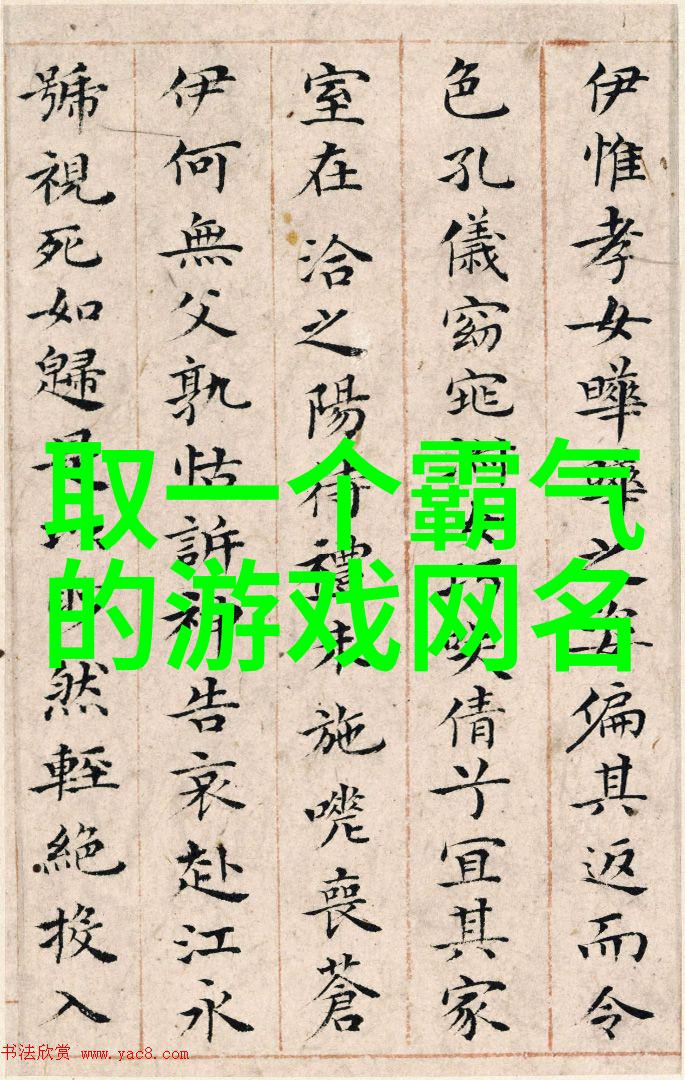 伊惟孝女曄曄之姿偏其返而令
色孔儀窈窕女巧咲倩兮宜其家
室在洽之陽待禮未施嗟喪蒼
伊何無父孰怙訴神告哀赴江永
號視死如歸是以眇然輕絶投入
取一个霸气
的游戏网名
书法欣赏 www.yac8.com